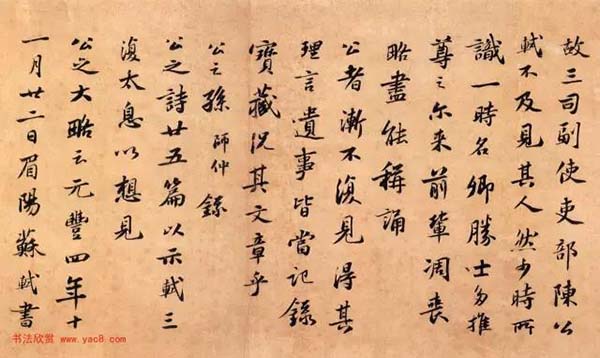 故三司副使吏部陳公
軾不及見其人然少時所
識一時名卿勝士多推
尊之尔来前輩凋喪
略盡能稱誦
公者漸不復見得其
理言遺事皆當記録
寶藏况其文章乎
公之孫師仲録
公之詩廿五篇以示軾三
復太息以想見
公之大略云元豐四年十
一月廿二日眉陽蘇軾書
书法欣赏 www.yac8.com